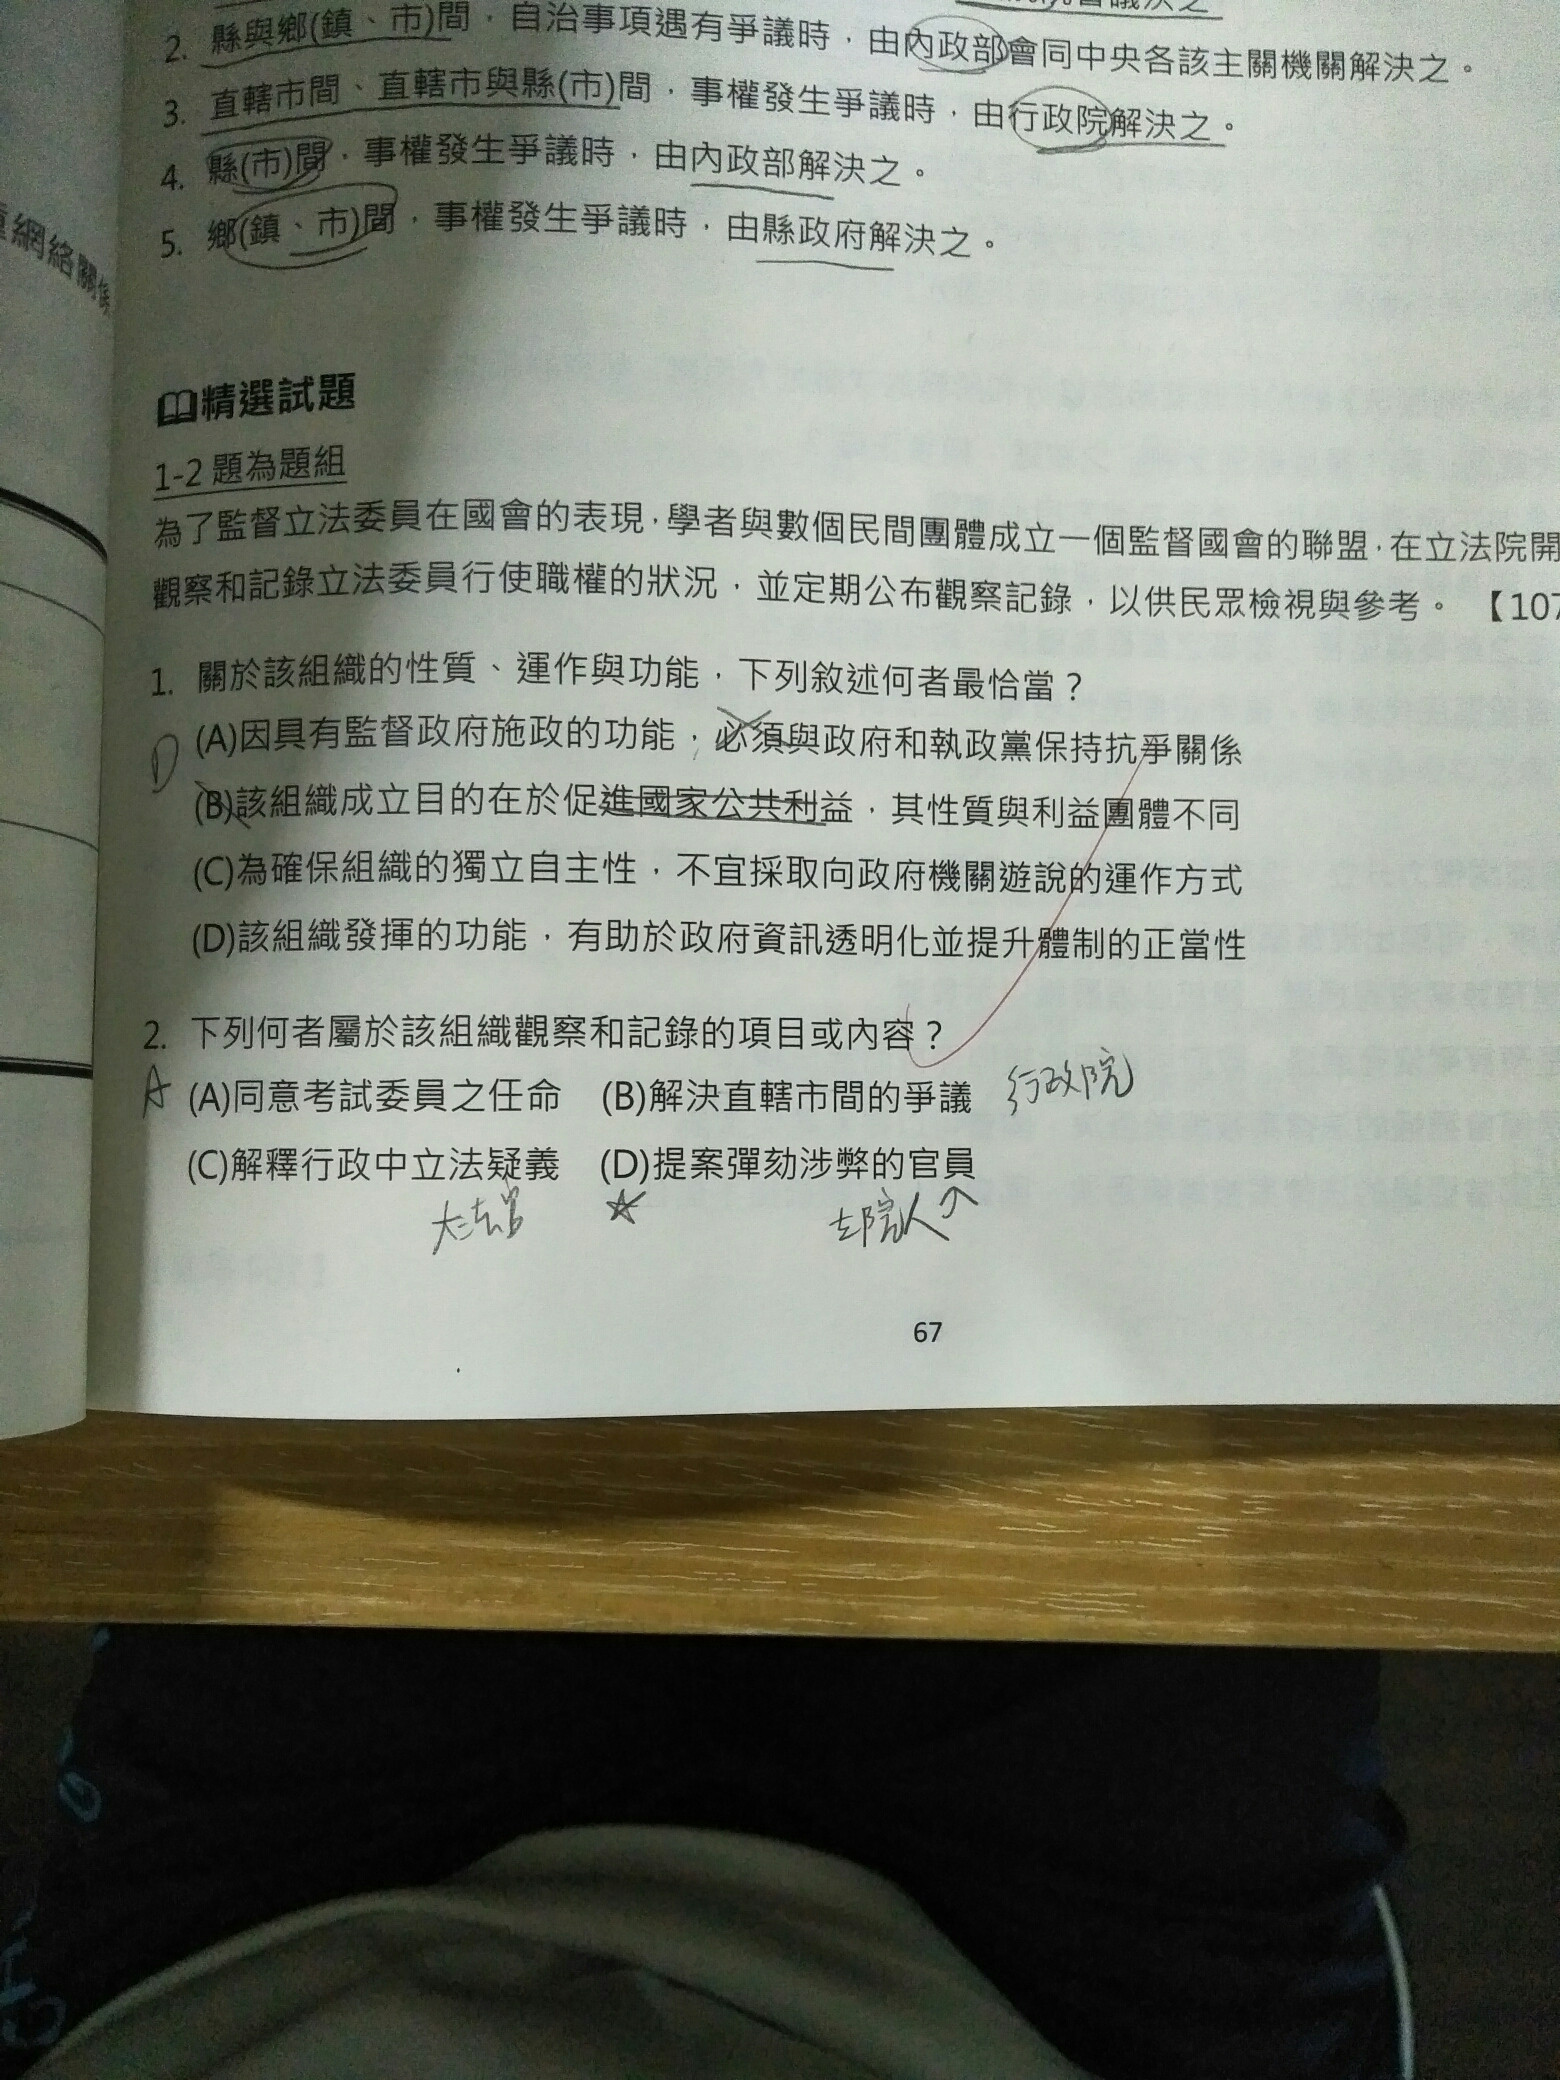 會議決之
2. 縣與鄉(鎮、市)間，自治事項遇有爭議時，由內政部會同中央各該主關機關解決之。
3. 直轄市間、直轄市與縣(市)間，事權發生爭議時，由行政院解決之。
4. 縣(市)間，事權發生爭議時，由內政部解決之。
5. 鄉(鎮、市)間，事權發生爭議時，由縣政府解決之。
網絡關係
精選試題
1-2 題為題組
為了監督立法委員在國會的表現，學者與數個民間團體成立一個監督國會的聯盟，在立法院開
觀察和記錄立法委員行使職權的狀況，並定期公布觀察記錄，以供民眾檢視與參考。 【107
1. 關於該組織的性質、運作與功能，下列敘述何者最恰當？
(A)因具有監督政府施政的功能，必須與政府和執政黨保持抗爭關係
D
(B)該組織成立目的在於促進國家公共利益，其性質與利益團體不同
(C)為確保組織的獨立自主性，不宜採取向政府機關遊說的運作方式
(D)該組織發揮的功能，有助於政府資訊透明化並提升體制的正當性
2. 下列何者屬於該組織觀察和記錄的項目或內容？
A (A)同意考試委員之任命 (B)解決直轄市間的爭議 行政院
(C)解釋行政中立法疑義 (D)提案彈劾涉弊的官員
大法官
67